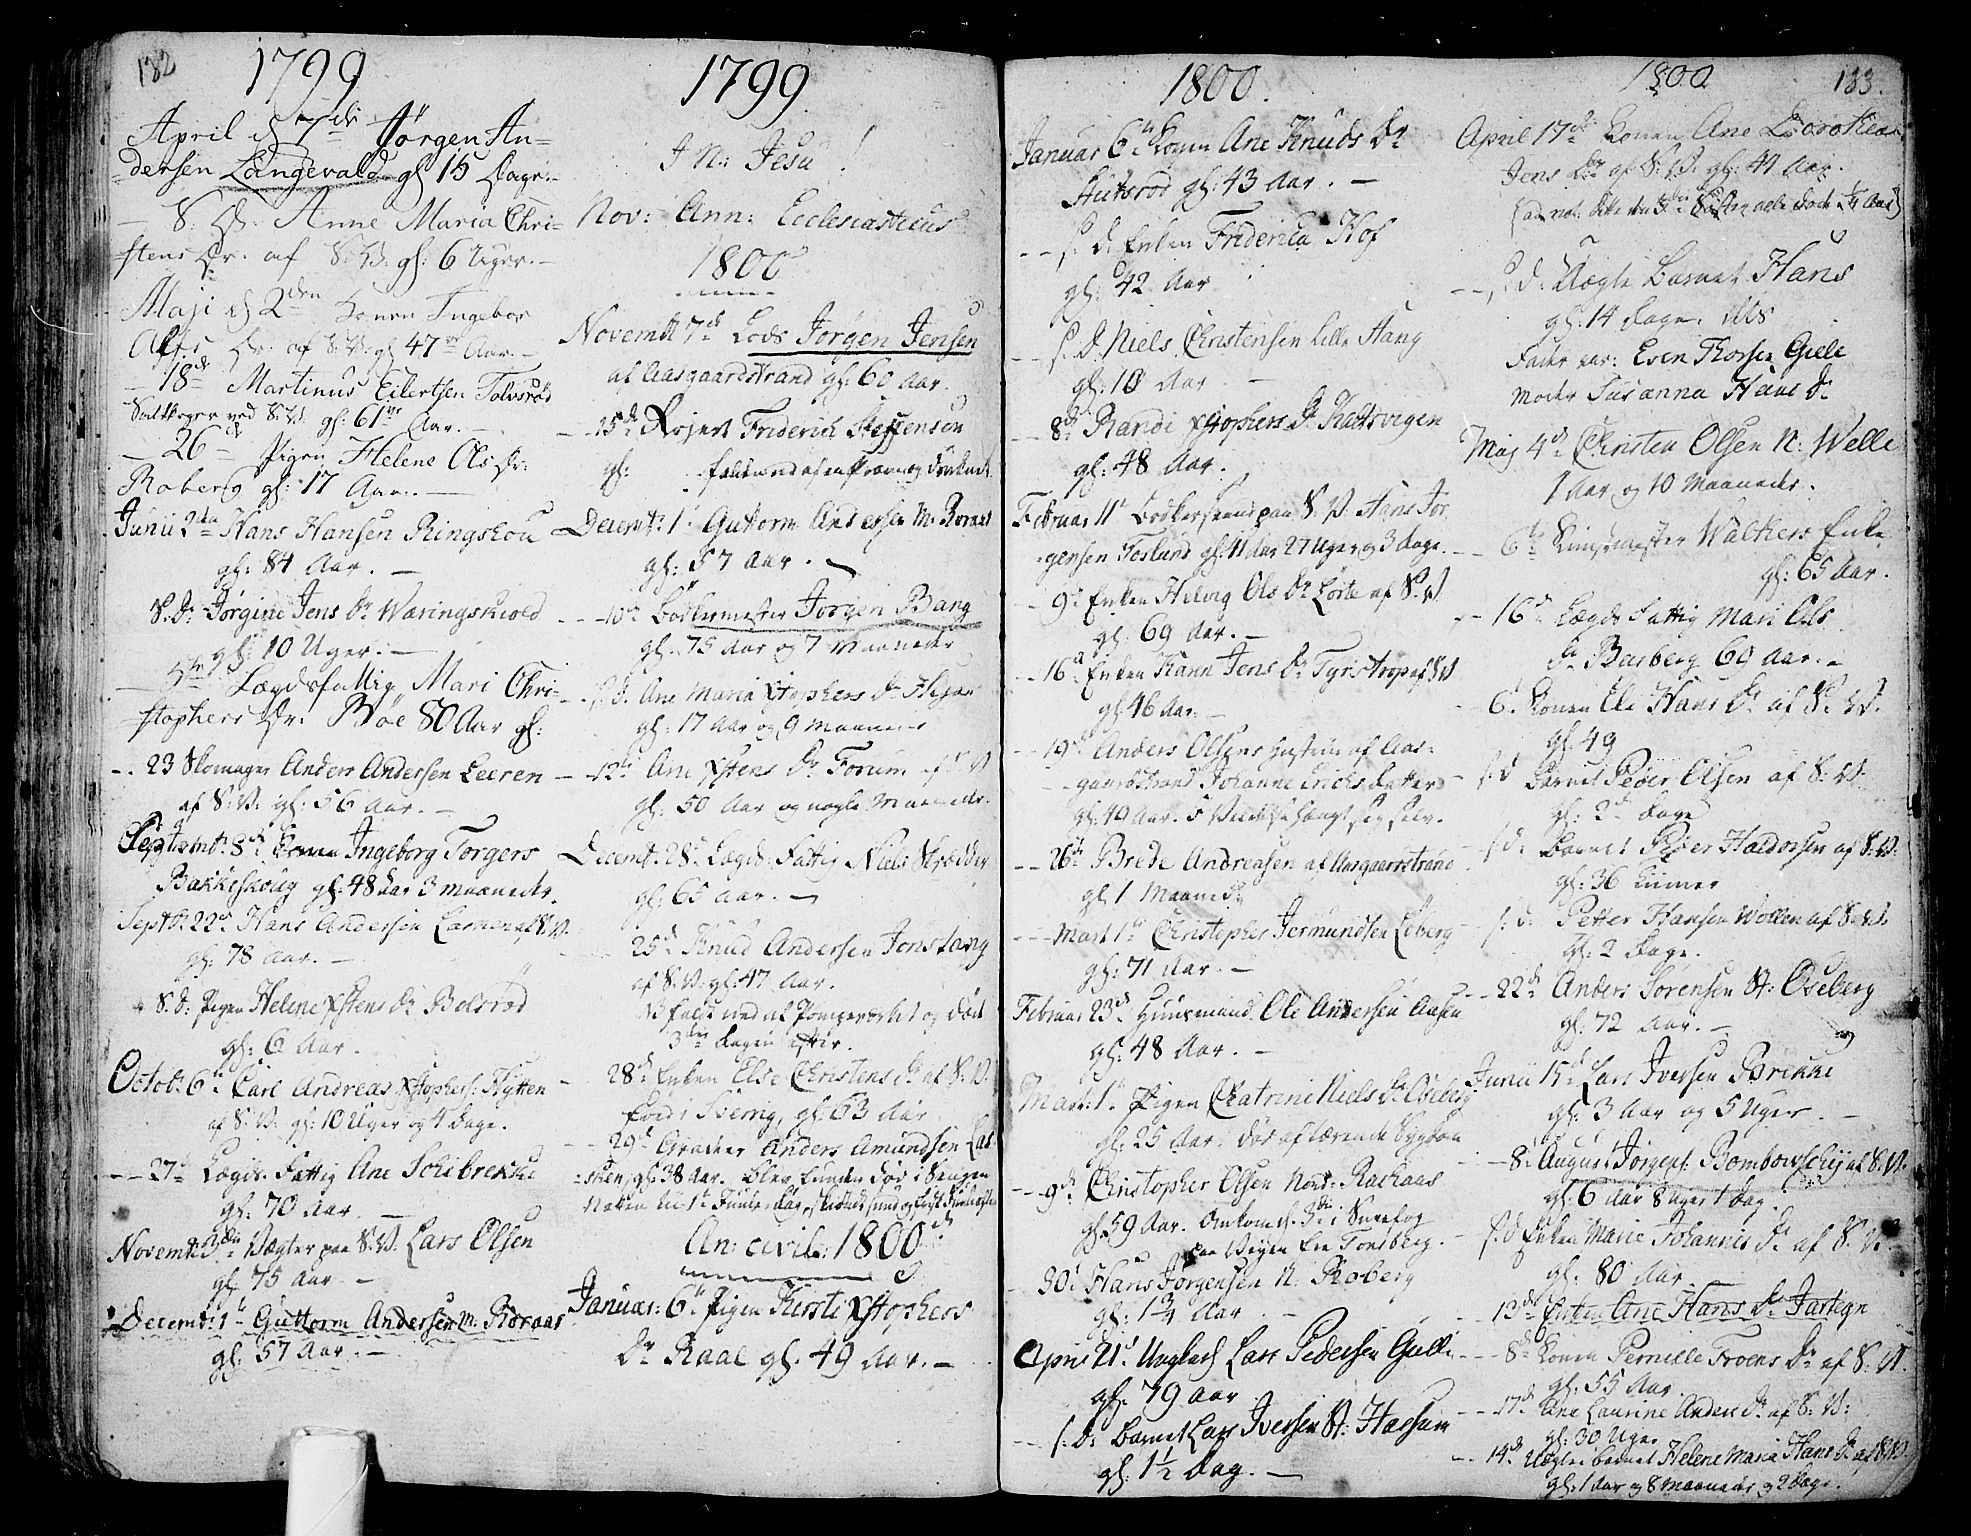 182
1799
April d 7de Jørgen An-
dersen Langevald gl 15 Dage.-
S. D. Anne Maria Chri-
stens Dr. af S.V. gl. 6 Uger.-
Maji d 2den Konen Ingebor
Ols Dr. af S.V. gl 47 Aar.-
18de Martinus Eilertsen Tolvsrød
ved S.V. gl: 61 Aar.-
26 Pigen Helene Ols Dr.
Roberg gl. 17 Aar.-
Junii 2den Hans Hansen Ringskou
gl. 84 Aar.-
S. D. Jørgine Jens Dr Waringskiold
gl: 10 Uger.-
Lægdsfattig Mari Chri-
stophers Dr. Bøe 80 Aar gl:
23 Skomager Anders Andersen Leeren
af S.V. gl. 56 Aar.-
Septembr. 8de Konen Ingeborg Torgers
Bakkeskoug gl. 48 Aar 3 Maaneder.
Septbr. 22de Hans Andersen af S.V.
gl. 78 Aar.-
S. D. Pigen Helene Xstens Dr Bolsrød
gl. 6 Aar.
Octob. 6te Carl Andreas Xstophers. Hytten
af S.V. gl. 10 Uger og 4 Dage.
27de Lægds Fattig Ane Schibrekke
gl. 70 Aar.-
Novembr 3die Vægter paa S.V. Lars Olsen
gl. 75 Aar.-
Decembr. 1te Guttorm Andersen M. Roraas
gl. 57 Aar.-
1799
J N: Jesu!
Nov: Ann: Ecclesiasticus
1800
Novembr 7de Lods Jørgen Jensen
af Aasgaardstrand gl: 60 Aar.
15de Friderich Steffensen
gl: faldt ned af en Pram og druknede
Decembr. 1te Guttorm Andersen M. Roraas
gl: 57 Aar.-
10de Bødkermester Jørgen Bang
gl. 75 Aar og 7 Maaneder
S. D. Ane Maria Xstophers Dr
gl. 17 Aar og 9 Maaneder
12te Ane Xstens Dr Forum af S.V
gl. 50 Aar og nogle Maaneder.
Decembr. 28de Lægds Fattig Niels Skrædder
gl. 65 Aar.-
25de Knud Andersen Jonstang
af S.V. gl. 47 Aar.
faldt ned af Pompeværket og døde
3die Dagen efter.
28de Enken Else Christens Dr af S.V.
født i Sverrig, gl. 63 Aar
29de Anders Amundsen Las-
sken, gl. 38 Aar. blev funden død i Sengen
An: civile: 1800
Januar: 6te Pigen Kirsti Xstophers
Dr Raae gl. 49 Aar.-
1800.
Januar 6te Konen Ane Knuds Dr
gl. 43 Aar.-
S. d. Enken Friderica Hof
gl. 42 Aar
S. D. Niels Christensen Lille Hang
gl. 10 Aar.-
8de Randi Xstophers Dr Kattsvigen
gl: 48 Aar.
Februar 11te paa S.V. Hans Jør-
gensen Foslund gl. 11 Aar 27 Uger og 3 Dage.
9de Enken Helvig Ols Dr Lørte af S.V.
gl. 69 Aar.-
16de Enken Karin Jens Dr Tyristrop af S.V
gl. 46 Aar.-
19de Anders Olsens Hustrue af Aas-
gaardstrand Johanne Erichs datter
gl. 49 Aar. hængt sig selv.
26de Brede Andreasen af Aasgaardstrand
gl 1 Maaned
Mart 1te Christopher Jermundsen Leberg
gl. 71 Aar.-
Februar 23de Huusmand Ole Andersen Aasen
gl. 48 Aar.-
Mart. 1te Pigen Chatrine Niels Dr Oseberg
gl. 25 Aar. døde af tærende Sygdom
9de Christopher Olsen Nord. Rakaas
gl. 59 Aar. omkomen i Sneefog
paa Veyen fra Tonsberg.
30te Hans Jørgensen N. Roberg
gl. 1 3/4 Aar
April 21de Ungkarl Lars Pedersen Gulli
gl. 79 Aar
S. D. Barnet Lars Iversen St. Hassum
gl. 1 1/2 Dag.-
1800 183.
April 17de Konen Ane Dorothea
Jens Dr af S.V. gl: 44 Aar.
S. d. Uægte Barnet Hans
gl. 14 Dage.
Fader var: Even Thorsen Giele
Moder Susanna Hans Dr
Maj 4de Christen Olsen N: Welle
1 Aar og 10 Maaneder.
6te Walthers Enke
gl. 65 Aar.
16de Lægds Fattig Mari Ols
Dr Basberg 69 Aar.-
6. Konen Ele Hans Dr af S.V.
gl. 49
S. d Barnet Peder Olsen af S.V.
gl. 2 Dage
S. d. Barnet Peder Haldorsen af S.V.
gl. 36 Timer
S. d. Petter Hansen Wollen af S.V.
gl. 2 Dage.
22de Anders Sørensen St: Oseberg
gl. 72 Aar.-
Junii 15de Lars Iversen Brekke
gl. 3 Aar og 5 Uger.-
8. August Jørgens. Bombowskij af S.V.
gl. 6 Aar 8 Uger 1 Dag.
S. d Enken Marie Johannis Dr af S.V.
gl. 80 Aar
13de Enken Ane Hans Dr Jartegn
8de Konen Pernille Froens Dr af S.V.
gl. 55 Aar
17de Ane Laurine Anders Dr af S.V.
gl. 30 Uger
14de Uægte Barnet Helene Maria Hans Dr af S.V.
gl. 1 Aar og 8 Maaneder og 2 Dage.